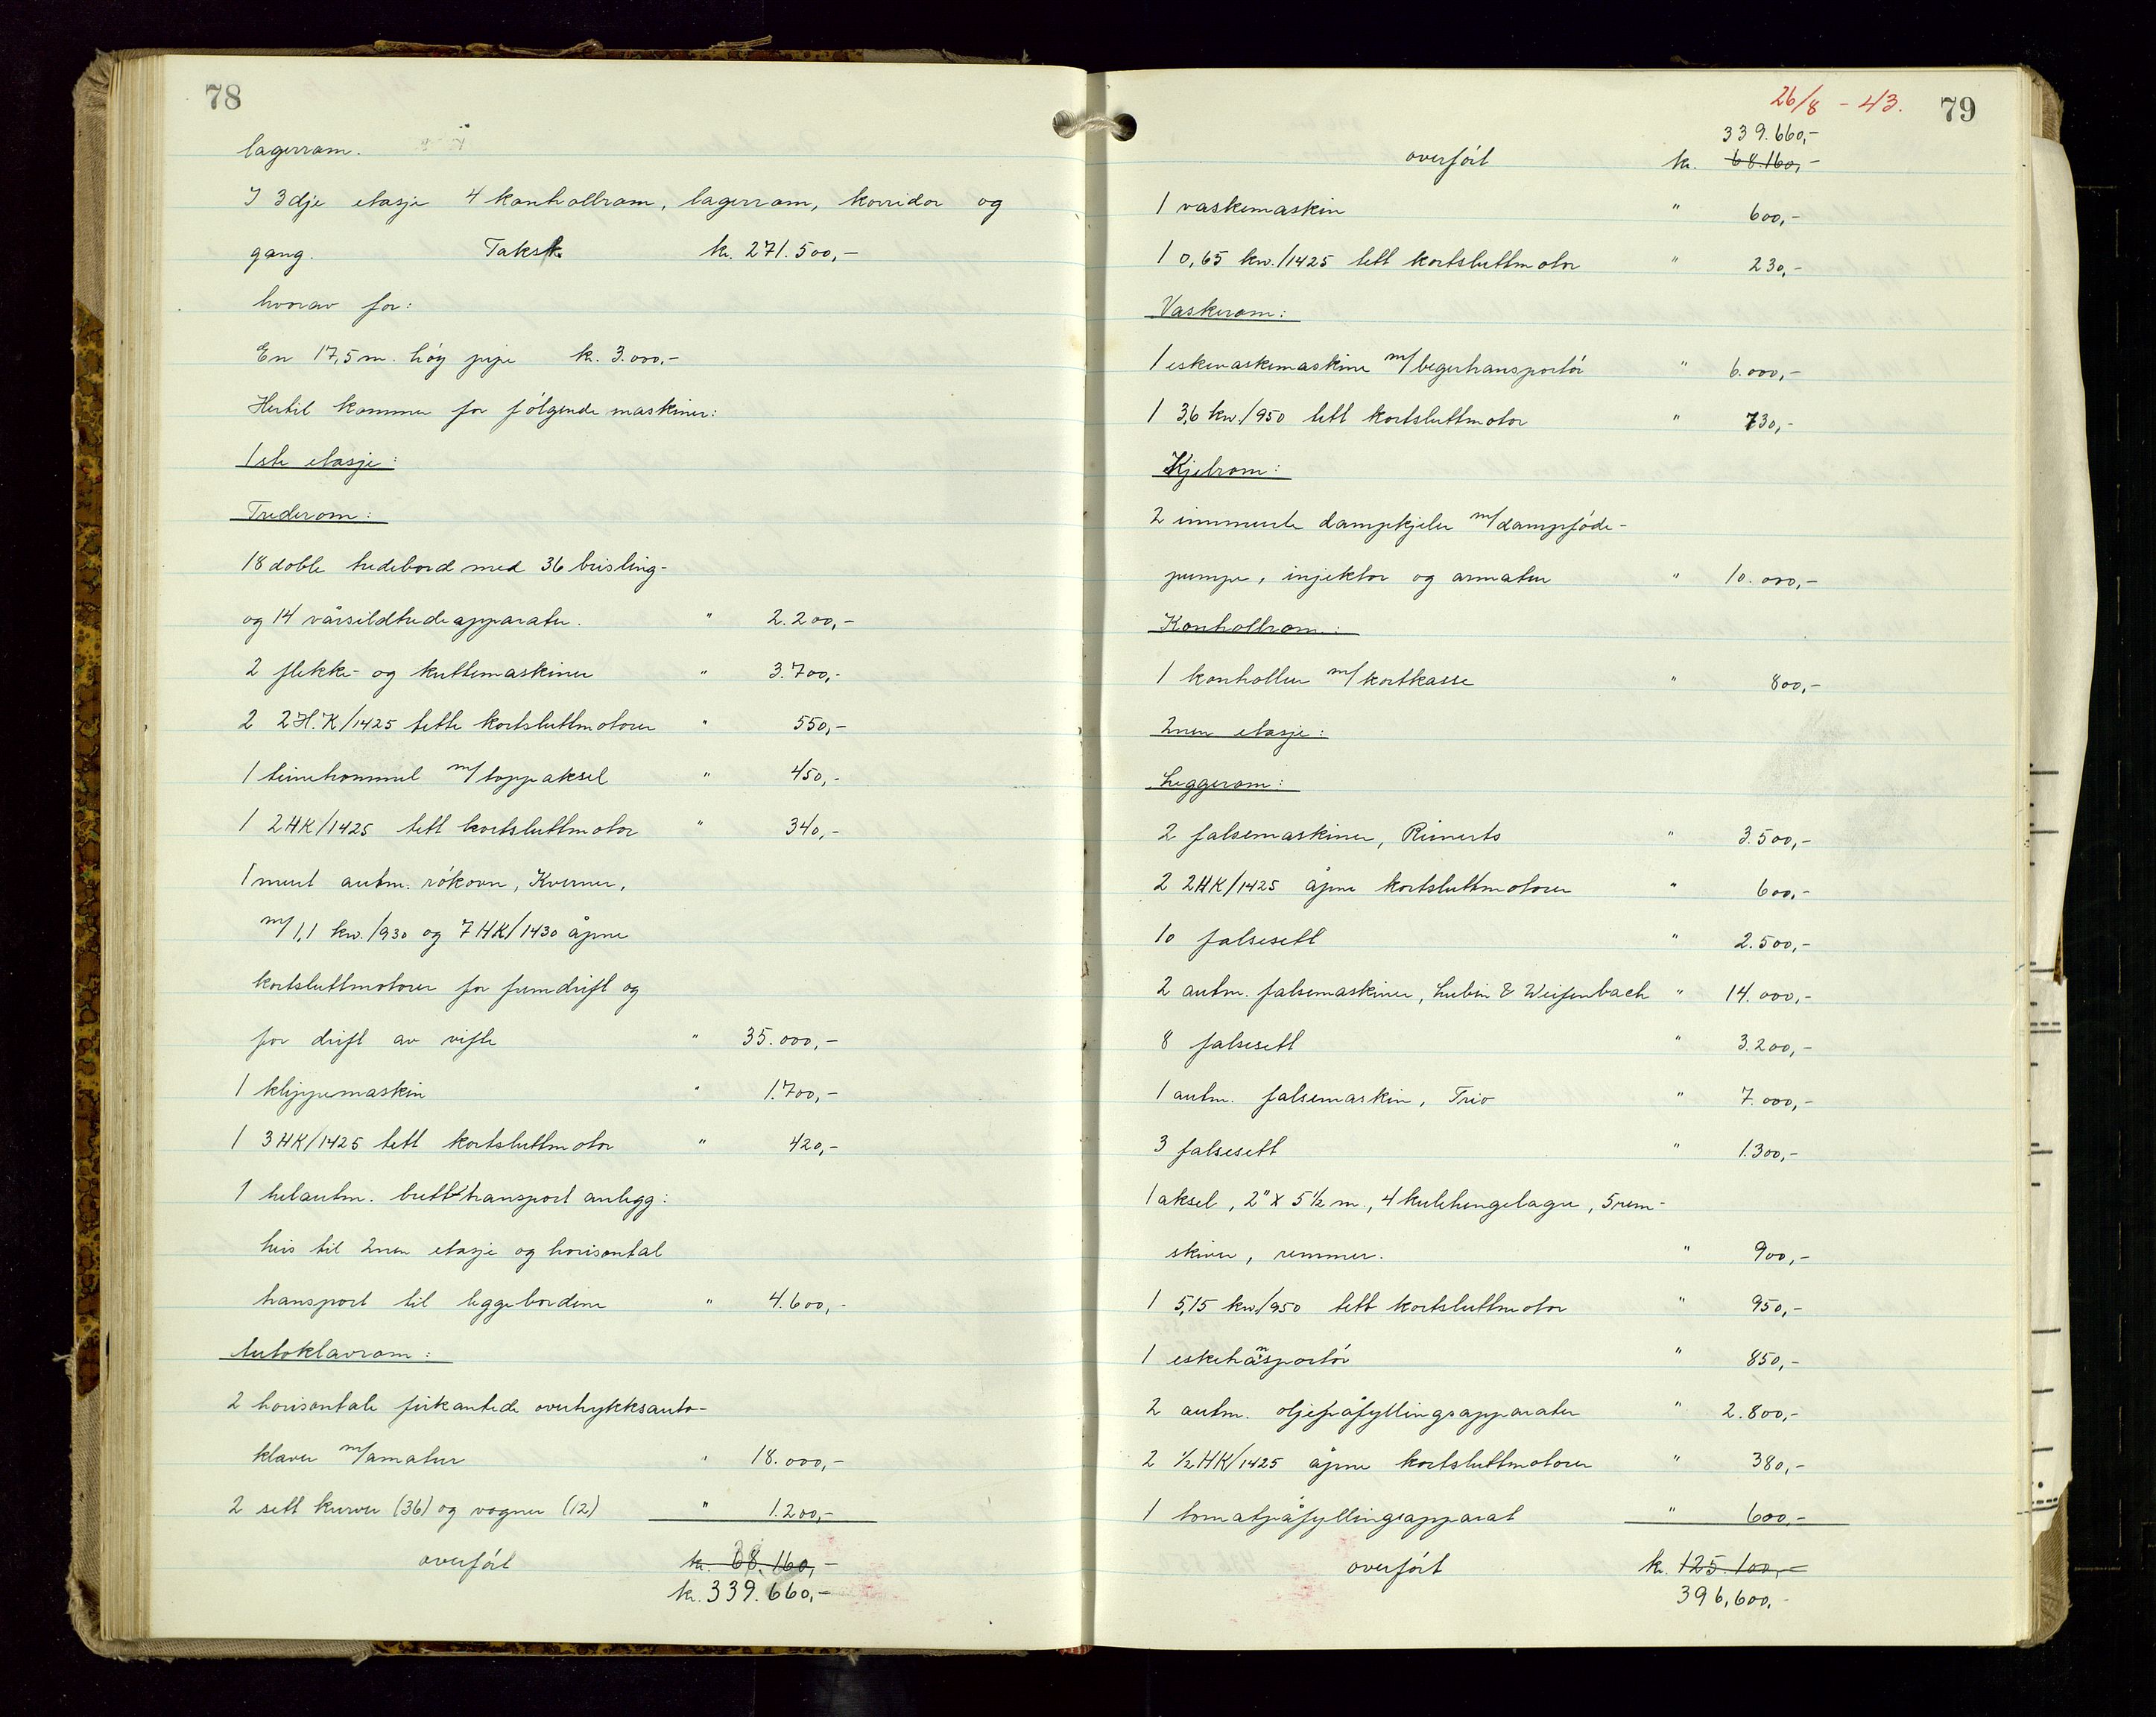 78
lagerrom.
I 3dje etasje 4 kontrollrom, lagerrom, korridor og
gang. Takst kr. 271.500,-
hvorav for:
En 17,5 m. høy pipe kr. 3.000,-
Hertil kommer for følgende maskiner:
1ste etasje:
Trederom:
18 doble tredebord med 36 brisling-
og 14 vårsildtredeapparater. " 2.200,-
2 flekke- og kuttemaskiner " 3.700,-
2 2 H.K/1425 tette kortsluttmotorer " 550,-
1 teinetrommel m/toppaksel " 450,-
1 2HK/1425 tett kortsluttmotor " 340,-
1 murt autm. røkovn, Kverner,
m/1,1 kw./930 og 7 HK/1430 åpne
kortsluttmotorer for fremdrift og
for drift av vifte " 35.000,-
1 klippemaskin " 1.700,-
1 3 HK/1425 tett kortsluttmotor " 420,-
1 helautm. brett transport anlegg:
heis til 2nen etasje og horisontal
transport til leggebordene " 4.600,-
Autoklavrom:
2 horisontale firkantede overtrykksauto-
klaver m/amatur " 18.000,-
2 sett kurver (36) og vogner (12) " 1.200,-
overført kr. 68.160,-
kr. 339.660,-
26/8 - 43. 79
339.660,-
overført kr. 68.160,-
1 vaskemaskin " 600,-
1 0,65 kw./1425 tett kortsluttmotor " 230,-
Vaskerom:
1 eskevaskemaskine m/begertransportør " 6.000,-
1 3,6 kw./950 tett kortsluttmotor " 730,-
Kjelrom:
2 innmurte dampkjeler m/dampføde-
pumpe, injektor og armatur " 10.000,-
Kontrollrom:
1 kontrollur m/kortkasse " 800,-
2nen etasje:
Leggerom:
2 falsemaskiner, Reinerts " 3.500,-
2 2HK/1425 åpne kortsluttmotorer " 600,-
10 falsesett " 2.500,-
2 autm. falsemaskiner, Lubin & Weifenbach " 14.000,-
8 falsesett " 3.200,-
1 autm. falsemaskin, Trio " 7.000,-
3 falsesett " 1.300,-
1 aksel, 2" x 5 1/2 m., 4 kulehengelagre, 5 rem-
skiver, remmer. " 900,-
1 5,15 kw/950 tett kortsluttmotor " 950,-
1 esketransportør " 850,-
2 autm. oljepåfyllingsapparater " 2.800,-
2 1/2 HK/1425 åpne kortsluttmotorer " 380,-
1 tomatpåfyllingsapparat " 600,-
overført kr. 125.100,-
396,600,-